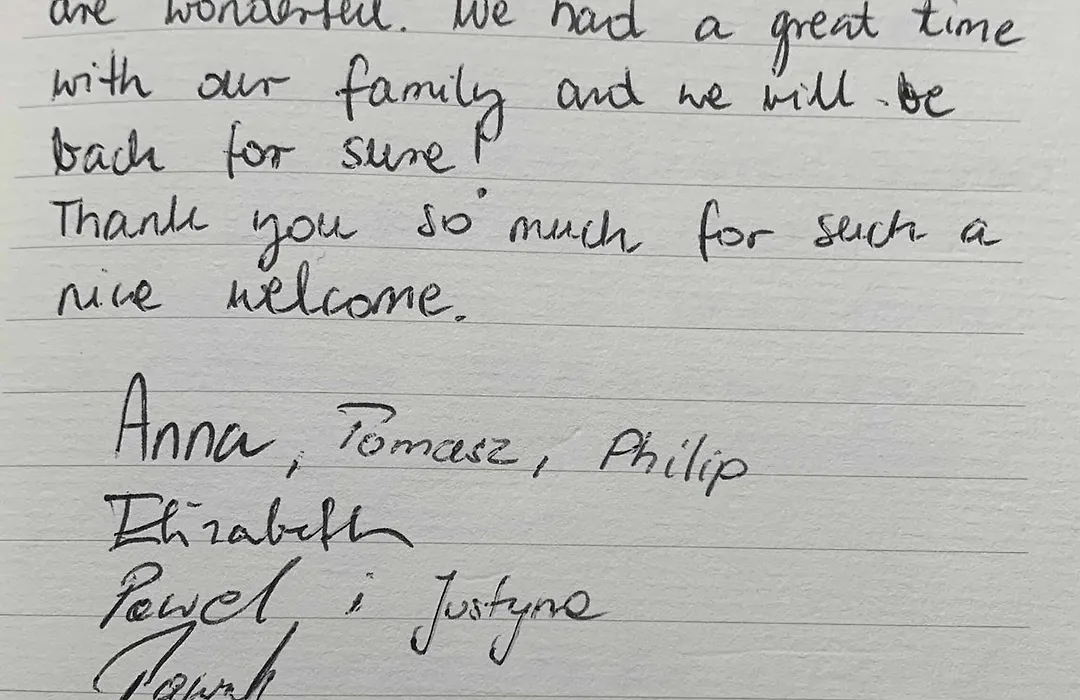 are wonderful. We had a great time
with our family and we will be
back for sure!
Thank you so much for such a
nice welcome.
Anna, Tomasz, Philip
Elizabeth
Paweł i Justyna